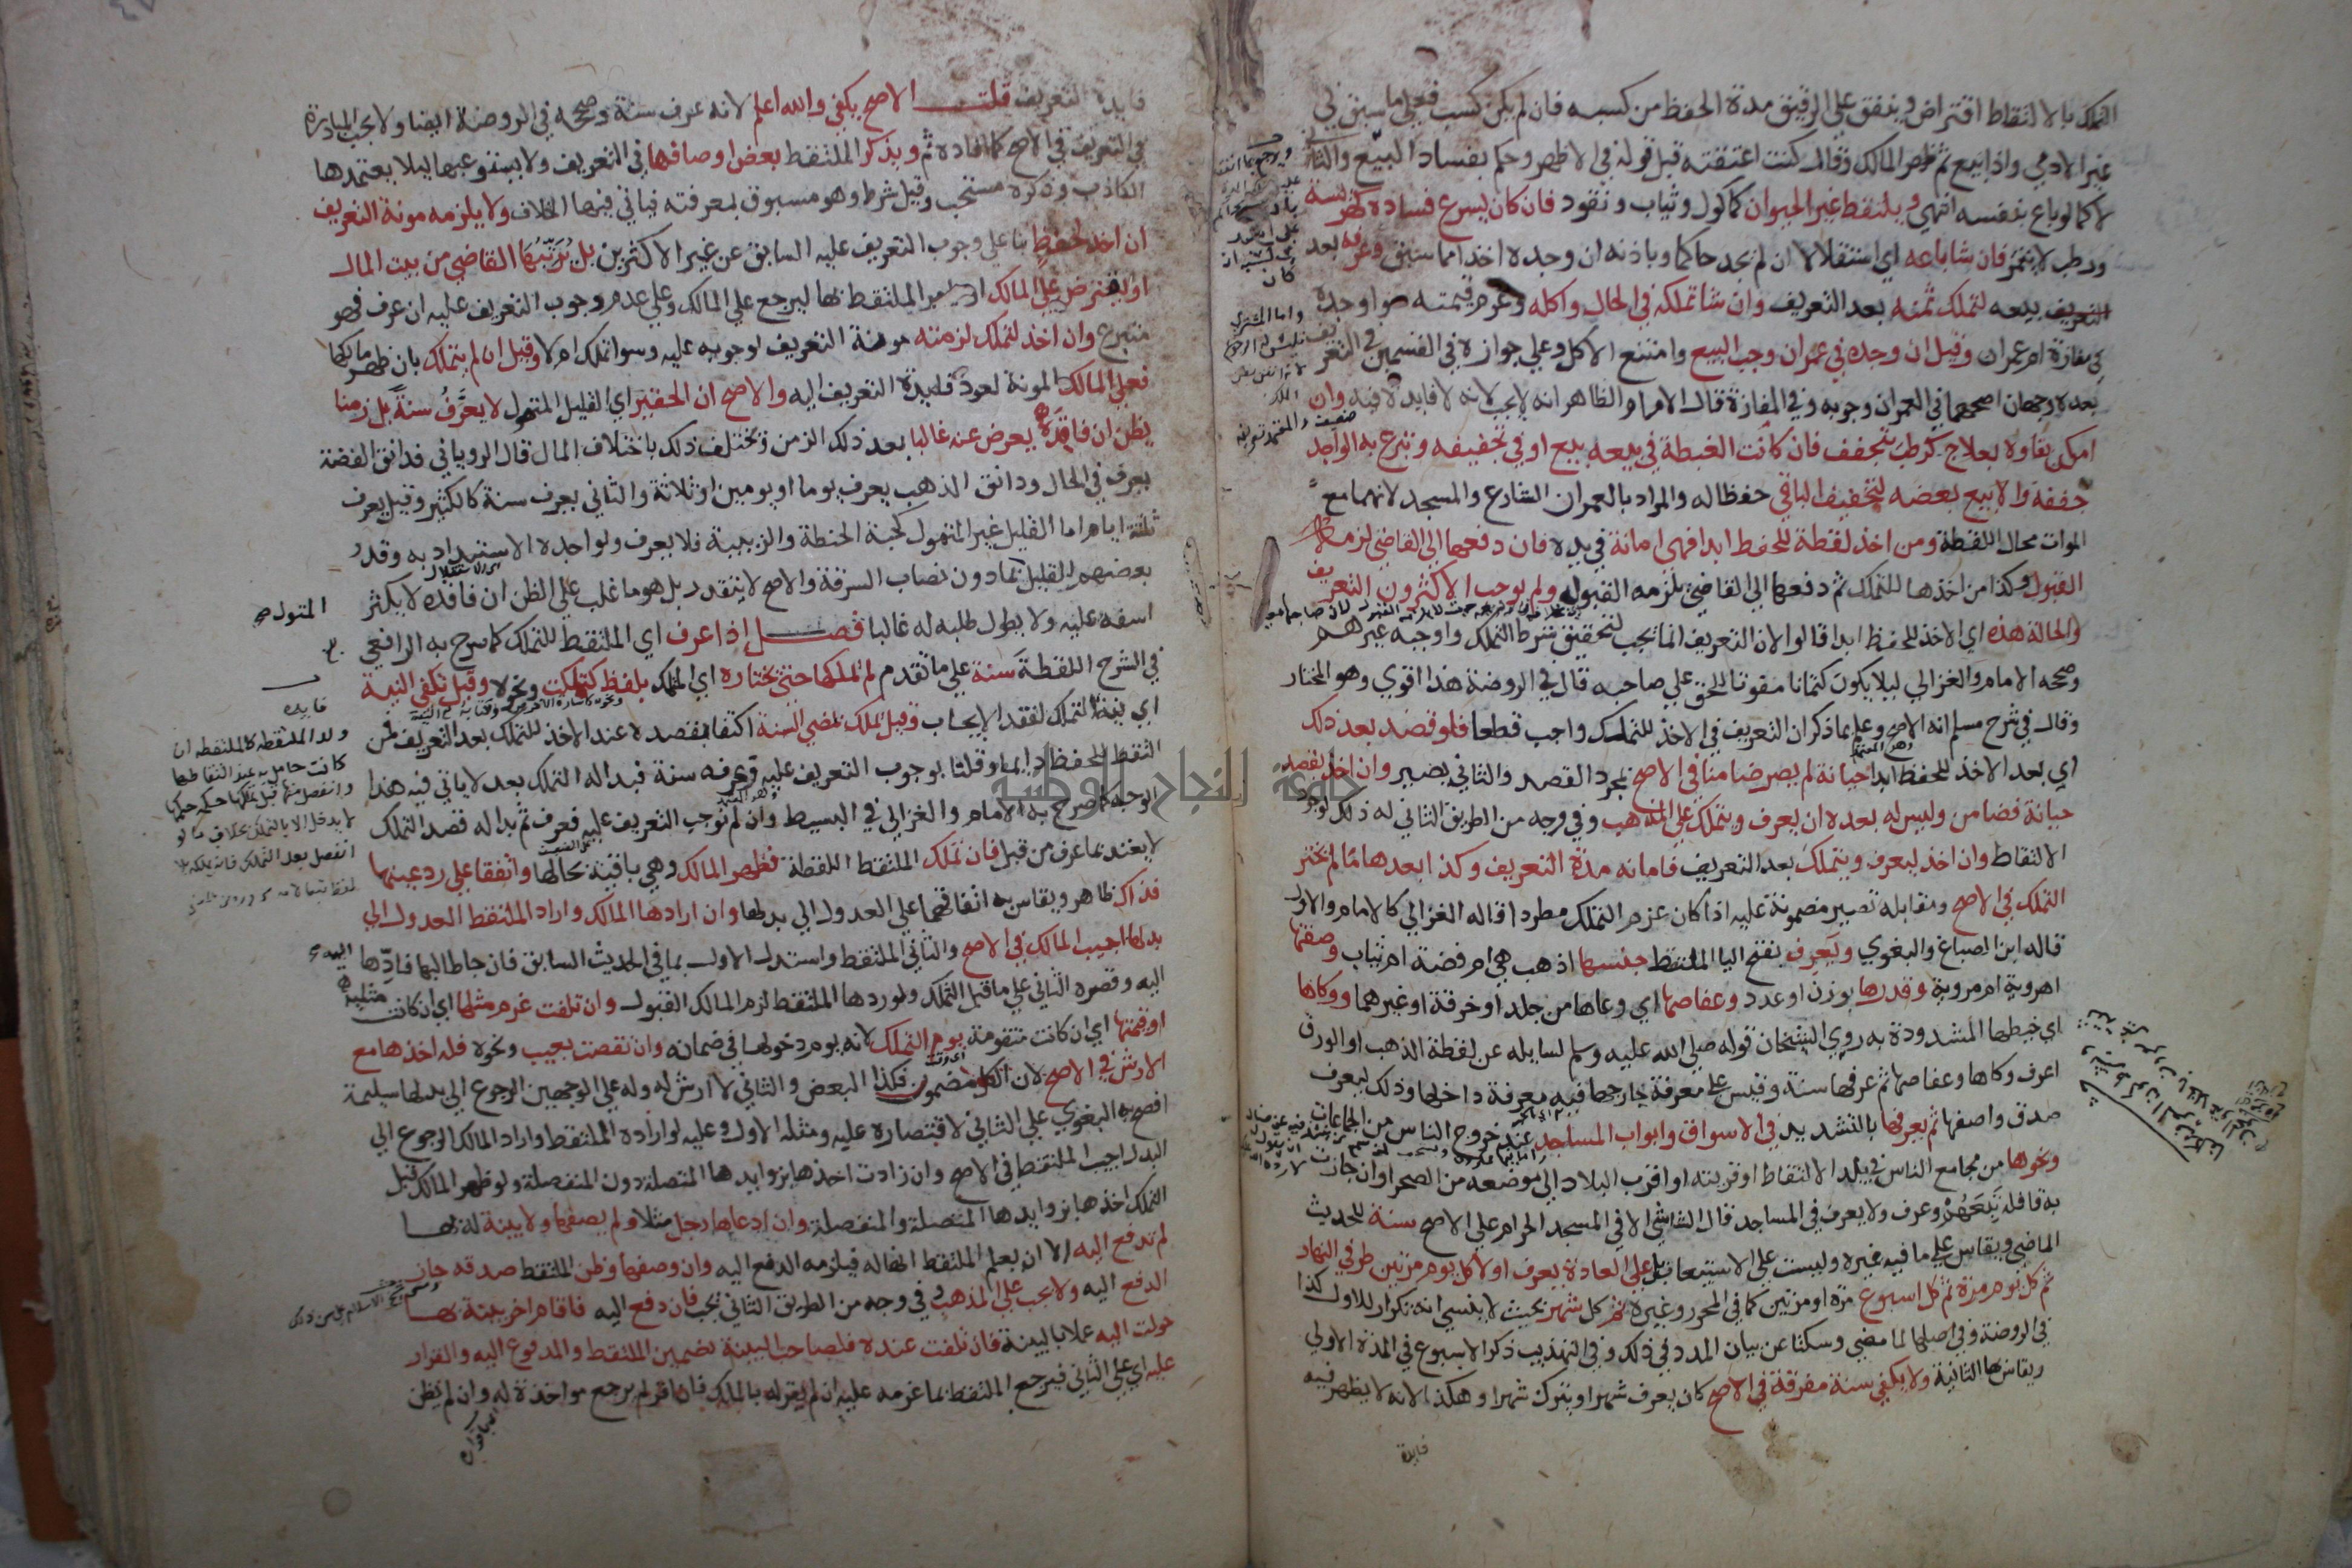 التملك بالالتقاط اقتراض وينفق علي الرقيق مدة الحفظ من كسبه فان لم يكن كسب فعلي ما سبق في
غير الادمي واذا بيع ثم ظهر المالك وقال كنت اعتقته قبل قوله في الاظهر وحكم بفساد البيع والثاني
لا كما لو باع بنفسه انتهي ويلتقط غير الحيوان كماكول وثياب ونقود فان كان يسرع فساده كهريسة
ورطب لا يتتمر فان شا باعه اي استقلالا ان لم يجد حاكما وباذنه ان وجده اخذا مما سبق وعرفه بعد
بيعه لتملك ثمنه بعد التعريف وان شا تملكه في الحال واكله وغرم قيمته سوا وجده
في مفازة ام عمران وقيل ان وجده في عمران وجب البيع وامتنع الاكل وعلي جوازه في القسمين في التعريف
بعده وجهان اصحهما في العمران وجوبه وفي المفازة قال الامام والظاهر انه لا يجب لانه لا فايدة فيه وان
امكن بقاوه بعلاج كرطب يتجفف فان كانت الغبطة في بيعه بيع او في تجفيفه وتبرع به الواجد
جففه والا بيع بعضه لتجفيف الباقي حفظا له والمراد بالعمران الشارع والمسجد لانهما مع
الموات محال اللقطة ومن اخذ لقطة للحفظ ابدا فهي امانة في يده فان دفعها الي القاضي لزمه
القبول وكذا من اخذها للتملك ثم دفعها الي القاضي يلزمه القبول ولم يوجب الاكثرون التعريف
والحالة هذه اي الاخذ للحفظ ابدا قالوا لان التعريف انما يجب لتحقيق شرط التملك واوجبه غيرهم
وصححه الامام والغزالي ليلا يكون كتمانا مفوتا للحق علي صاحبه قال في الروضة هذا اقوي وهو المختار
وقال في شرح مسلم انه الاصح وعلم بما ذكر ان التعريف في الاخذ للتملك واجب قطعا فلو قصد بعد ذلك
اي بعد الاخذ للحفظ ابدا خيانة لم يصر ضامنا في الاصح بمجرد القصد والثاني يصير وان اخذ بقصد
خيانة فضامن وليس له بعده ان يعرف ويتملك علي المذهب وفي وجه من الطريق الثاني له ذلك لوجود
الالتقاط وان اخذ ليعرف ويتملك بعد التعريف فامانة مدة التعريف وكذا بعدها ما لم يختر
التملك في الاصح ومقابله تصير مضمونة عليه اذا كان عزم التملك مطردا قاله الغزالي كالامام والاول
قاله ابن الصباغ والبغوي ويعرف بفتح اليا الملتقط جنسها اذهب هي ام فضة ام ثياب وصفتها
اهروية ام مروية وقدرها بوزن او عدد وعفاصها اي وعاها من جلد او خرقة او غيرهما ووكاها
اي خيطها المشدودة به روي الشيخان قوله صلي الله عليه وسلم لسايله عن لقطة الذهب او الورق
اعرف وكاها وعفاصها ثم عرفها سنة وقيس علي معرفة خارجها فيه معرفة داخلها وذلك ليعرف
صدق واصفها ثم يعرفها بالتشديد في الاسواق وابواب المساجد عند خروج الناس من الجماعات
ونحوها من مجامع الناس في بلد الالتقاط او قريته او اقرب البلاد الي موضعه من الصحرا وان جازت
به قافلة تبعهم وعرف ولا يعرف في المساجد قال الشاشي الا في المسجد الحرام علي الاصح سنة للحديث
الماضي ويقاس علي ما فيه غيره وليست علي الاستيعاب بل علي العادة يعرف اولا كل يوم مرتين طرفي النهار
ثم كل يوم مرة ثم كل اسبوع مرة او مرتين كما في المحرر وغيره ثم كل شهر بحيث لا ينسي انه تكرار للاول كذا
في الروضة وفي اصلها لما مضي وسكتا عن بيان المدد في ذلك وفي التهذيب ذكر الاسبوع في المدة الاولي
ويقاس بها الثانية ولا يكفي سنة مفرقة في الاصح كان يعرف شهرا ويترك شهرا وهكذا لانه لا يظهر فيه
فايدة
فايدة التعريف قلت الاصح يكفي والله اعلم لانه عرف سنة وصححه في الروضة ايضا ولا يجب المبادرة
في التعريف في الاصح كما افاده ثم ويذكر الملتقط بعض اوصافها في التعريف ولا يستوعبها ليلا يعتمدها
الكاذب وذكره مستحب وقيل شرط وهو مسبوق بمعرفته فياتي فيها الخلاف ولا يلزمه مونة التعريف
ان اخذ لحفظ بنا علي وجوب التعريف عليه السابق عن غير الاكثرين بل يرتبها القاضي من بيت المال
او يقترض علي المالك او يامر الملتقط بها ليرجع علي المالك وعلي عدم وجوب التعريف عليه ان عرف فهو
متبرع وان اخذ لتملك لزمته مونة التعريف لوجوبه عليه وسوا تملك ام لا وقيل ان لم يتملك بان ظهر مالكها
فعلي المالك المونة لعود فايدة التعريف اليه والاصح ان الحقير اي القليل المتمول لا يعرف سنة بل زمنا
يظن ان فاقده يعرض عنه غالبا بعد ذلك الزمن وتختلف ذلك باختلاف المال قال الروياني فدانق الفضة
يعرف في الحال ودانق الذهب يعرف يوما او يومين او ثلاثة والثاني يعرف سنة كالكثير وقيل يعرف
ثلثة ايام اما القليل غير المتمول كحبة الحنطة والزبيبة فلا يعرف ولواجده الاستبداد به وقدر
بعضهم القليل بما دون نصاب السرقة والاصح لا يتقدر بل هو ما غلب علي الظن ان فاقده لا يكثر
اسفه عليه ولا يطول طلبه له غالبا فصل إذا عرف اي الملتقط للتملك كما صرح به الرافعي
في الشرح اللقطة سنة علي ما تقدم لم تملكها حتي يختاره اي التملك بلفظ كتملكت ونحوه وقيل تكفي النية
اي نية التملك لفقد الايجاب وقيل تملك بمضي السنة اكتفا بقصده عند الاخذ للتملك بعد التعريف فمن
التقط للحفظ دايما وقلنا بوجوب التعريف عليه وعرفه سنة فبدا له التملك بعد لا ياتي فيه هذا
الوجه كما صرح به الامام والغزالي في البسيط وان لم نوجب التعريف عليه فعرف ثم بدا له قصد التملك
لا يعتد بما عرف من قبل فان تملك الملتقط اللقطة فظهر المالك وهي باقية بحالها واتفقا علي رد عينها
فذاك ظاهر ويقاس به اتفاقهما علي العدول الي بدلها وان ارادها المالك واراد الملتقط العدول الي
بدلها اجيب المالك في الاصح والثاني الملتقط واستدل الاول بما في الحديث السابق فان جا طالبها فادها
اليه وقصره الثاني علي ما قبل التملك ولو ردها الملتقط لزم المالك القبول وان تلفت غرم مثلها اي ان كانت مثلية
او قيمتها اي ان كانت متقومة يوم التملك لانه يوم دخولها في ضمانه وان نقصت بعيب ونحوه فله اخذها مع
الارش في الاصح لان الكل مضمون فكذا البعض والثاني لا ارش له وله علي الوجهين الرجوع الي بدلها سليمة
افصح به البغوي علي الثاني لاقتصاره عليه ومثله الاول وعليه لو اراده الملتقط واراد المالك الرجوع الي
البدل اجيب الملتقط في الاصح وان زادت اخذها بزوايدها المتصلة دون المنفصلة ولو ظهر المالك قبل
التملك اخذها بزوايدها المتصلة والمنفصلة وان ادعاها رجل مثلا ولم يصفها ولا بينة له بها
لم تدفع اليه الا ان يعلم الملتقط انها له فيلزمه الدفع اليه وان وصفها وظن الملتقط صدقه جاز
الدفع اليه ولا يجب علي المذهب وفي وجه من الطريق الثاني يجب فان دفع اليه فاقام اخر بينة بها
حولت اليه عملا بالبينة فان تلفت عنده فلصاحب البينة تضمين الملتقط والمدفوع اليه والقرار
عليه اي علي الثاني فيرجع الملتقط بما غرمه عليه ان لم يقر له بالملك فان اقر لم يرجع مواخذة له وان لم تظن
فايده
ولد الملتقطه كالملتقطه ان
كانت حامل به عند التقاطها
وانفصل منها قبل تملكها
جامعة النجاح الوطنية